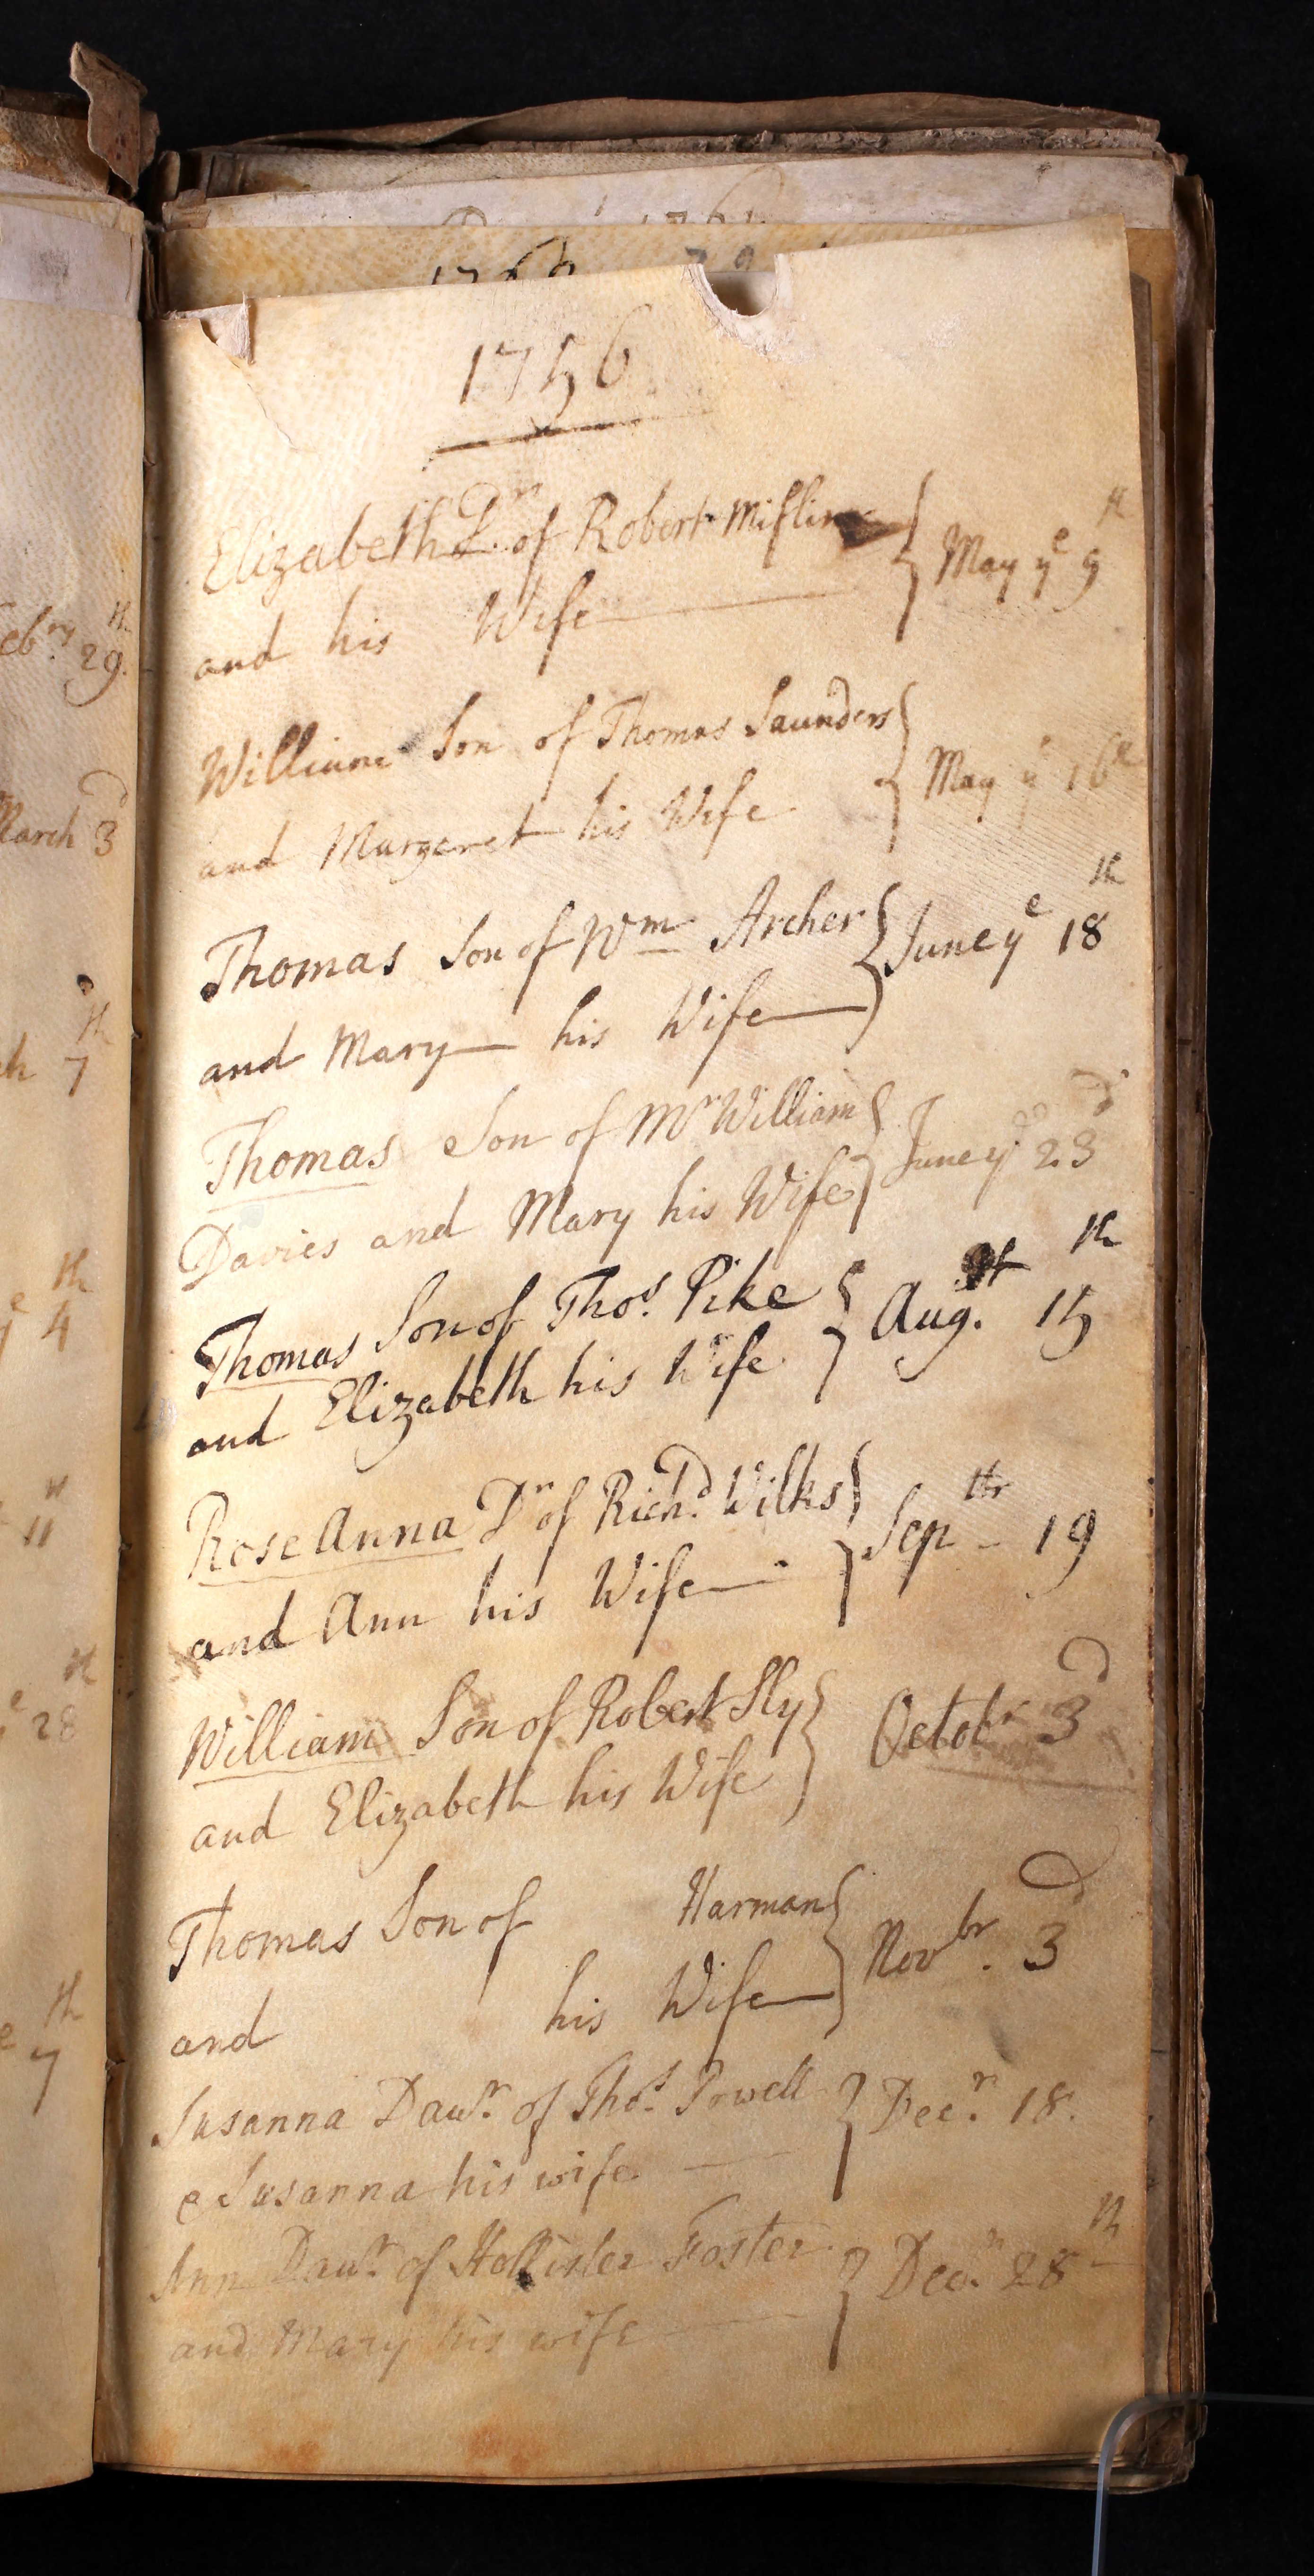 1756
Elizabeth Dr. of Robert Miflin
and his Wife
May ye 9th
William Son of Thomas Saunders
and Margaret his Wife
May ye 16th
Thomas Son of Wm Archer
and Mary his Wife
June ye 18th
Thomas Son of Mr William
Davies and Mary his Wife
June ye 23d
Thomas Son of Thos. Pike
and Elizabeth his Wife
Augst. 15th
Rose Anna Dr of Richd. Wilks
and Ann his Wife
Septr 19
William Son of Robert Sly
and Elizabeth his Wife
Octobr 3d
Thomas Son of Harman
and his Wife
Novbr. 3d
Susanna Daur. of Thos. Powell
& Susanna his wife
Decr. 18.
Ann Daur. of Hollister Foster
and Mary his wife
Decr. 28th
ebry. 29th.
March 3d
h 7th
e 4th
11th
e 28th
e 7th